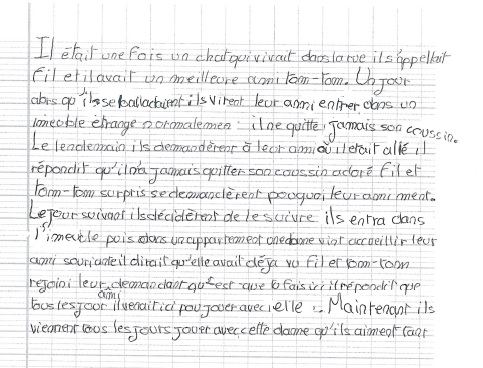 Il était une fois un chat qui vivait dans la rue il s'appellait
Fil et il avait un meilleure ami tom-tom. Un jour
alors qu'ils se balladaient ils virent leur ami entrer dans un
imeuble étrange normalemen : il ne quitte jamais son coussin.
Le lendemain ils demandèrent à leur ami où il était allé il
répondit qu'il n'a jamais quitter son coussin adoré Fil et
tom-tom surpris se demandèrent pouquoi leur ami ment.
Le jour suivant ils décidèrent de le suivre ils entra dans
l'imeuble puis dans un appartement une dame vint accueillir leur
ami souriante il dirait qu'elle avait déjà vu fil et tom-tom
rejoini leur ami demandant qu'est que tu fais ici il répondit que
tous les jour il venait ici pou jouer avec elle. Maintenant ils
viennent tous les jours jouer avec cette dame qu'ils aiment tant